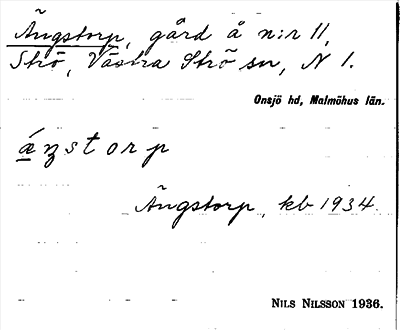 Ängstorp, gård å n:r 11,
Strö, Västra Strö sn, N 1.
Onsjö hd, Malmöhus län.
ǽŋstorp
Ängstorp, kb 1934.
NILS NILSSON 1936.